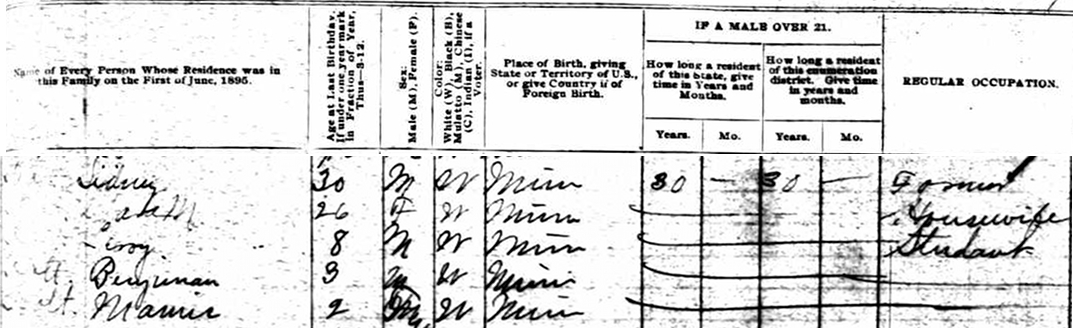 IF A MALE OVER 21.
Name of Every Person Whose Residence was in this Family on the First of June, 1895.
Age at Last Birthday. If under one year mark in Fraction of Year, Thus—3-12.
Sex: Male (M), Female (F).
Color: White (W), Black (B), Mulatto (M), Chinese (C), Indian (I), if a Voter.
Place of Birth, giving State or Territory of U.S., or give Country if of Foreign Birth.
How long a resident of this State, give time in Years and Months.
How long a resident of this enumeration district. Give time in years and months.
REGULAR OCCUPATION.
Years. Mo. Years. Mo.
Sidney 30 M W Minn 30 — 30 — Farmer
26 F W Minn Housewife
Leroy 8 M W Minn Student
Benjiman 3 M W Minn
Mamie 2 W Minn